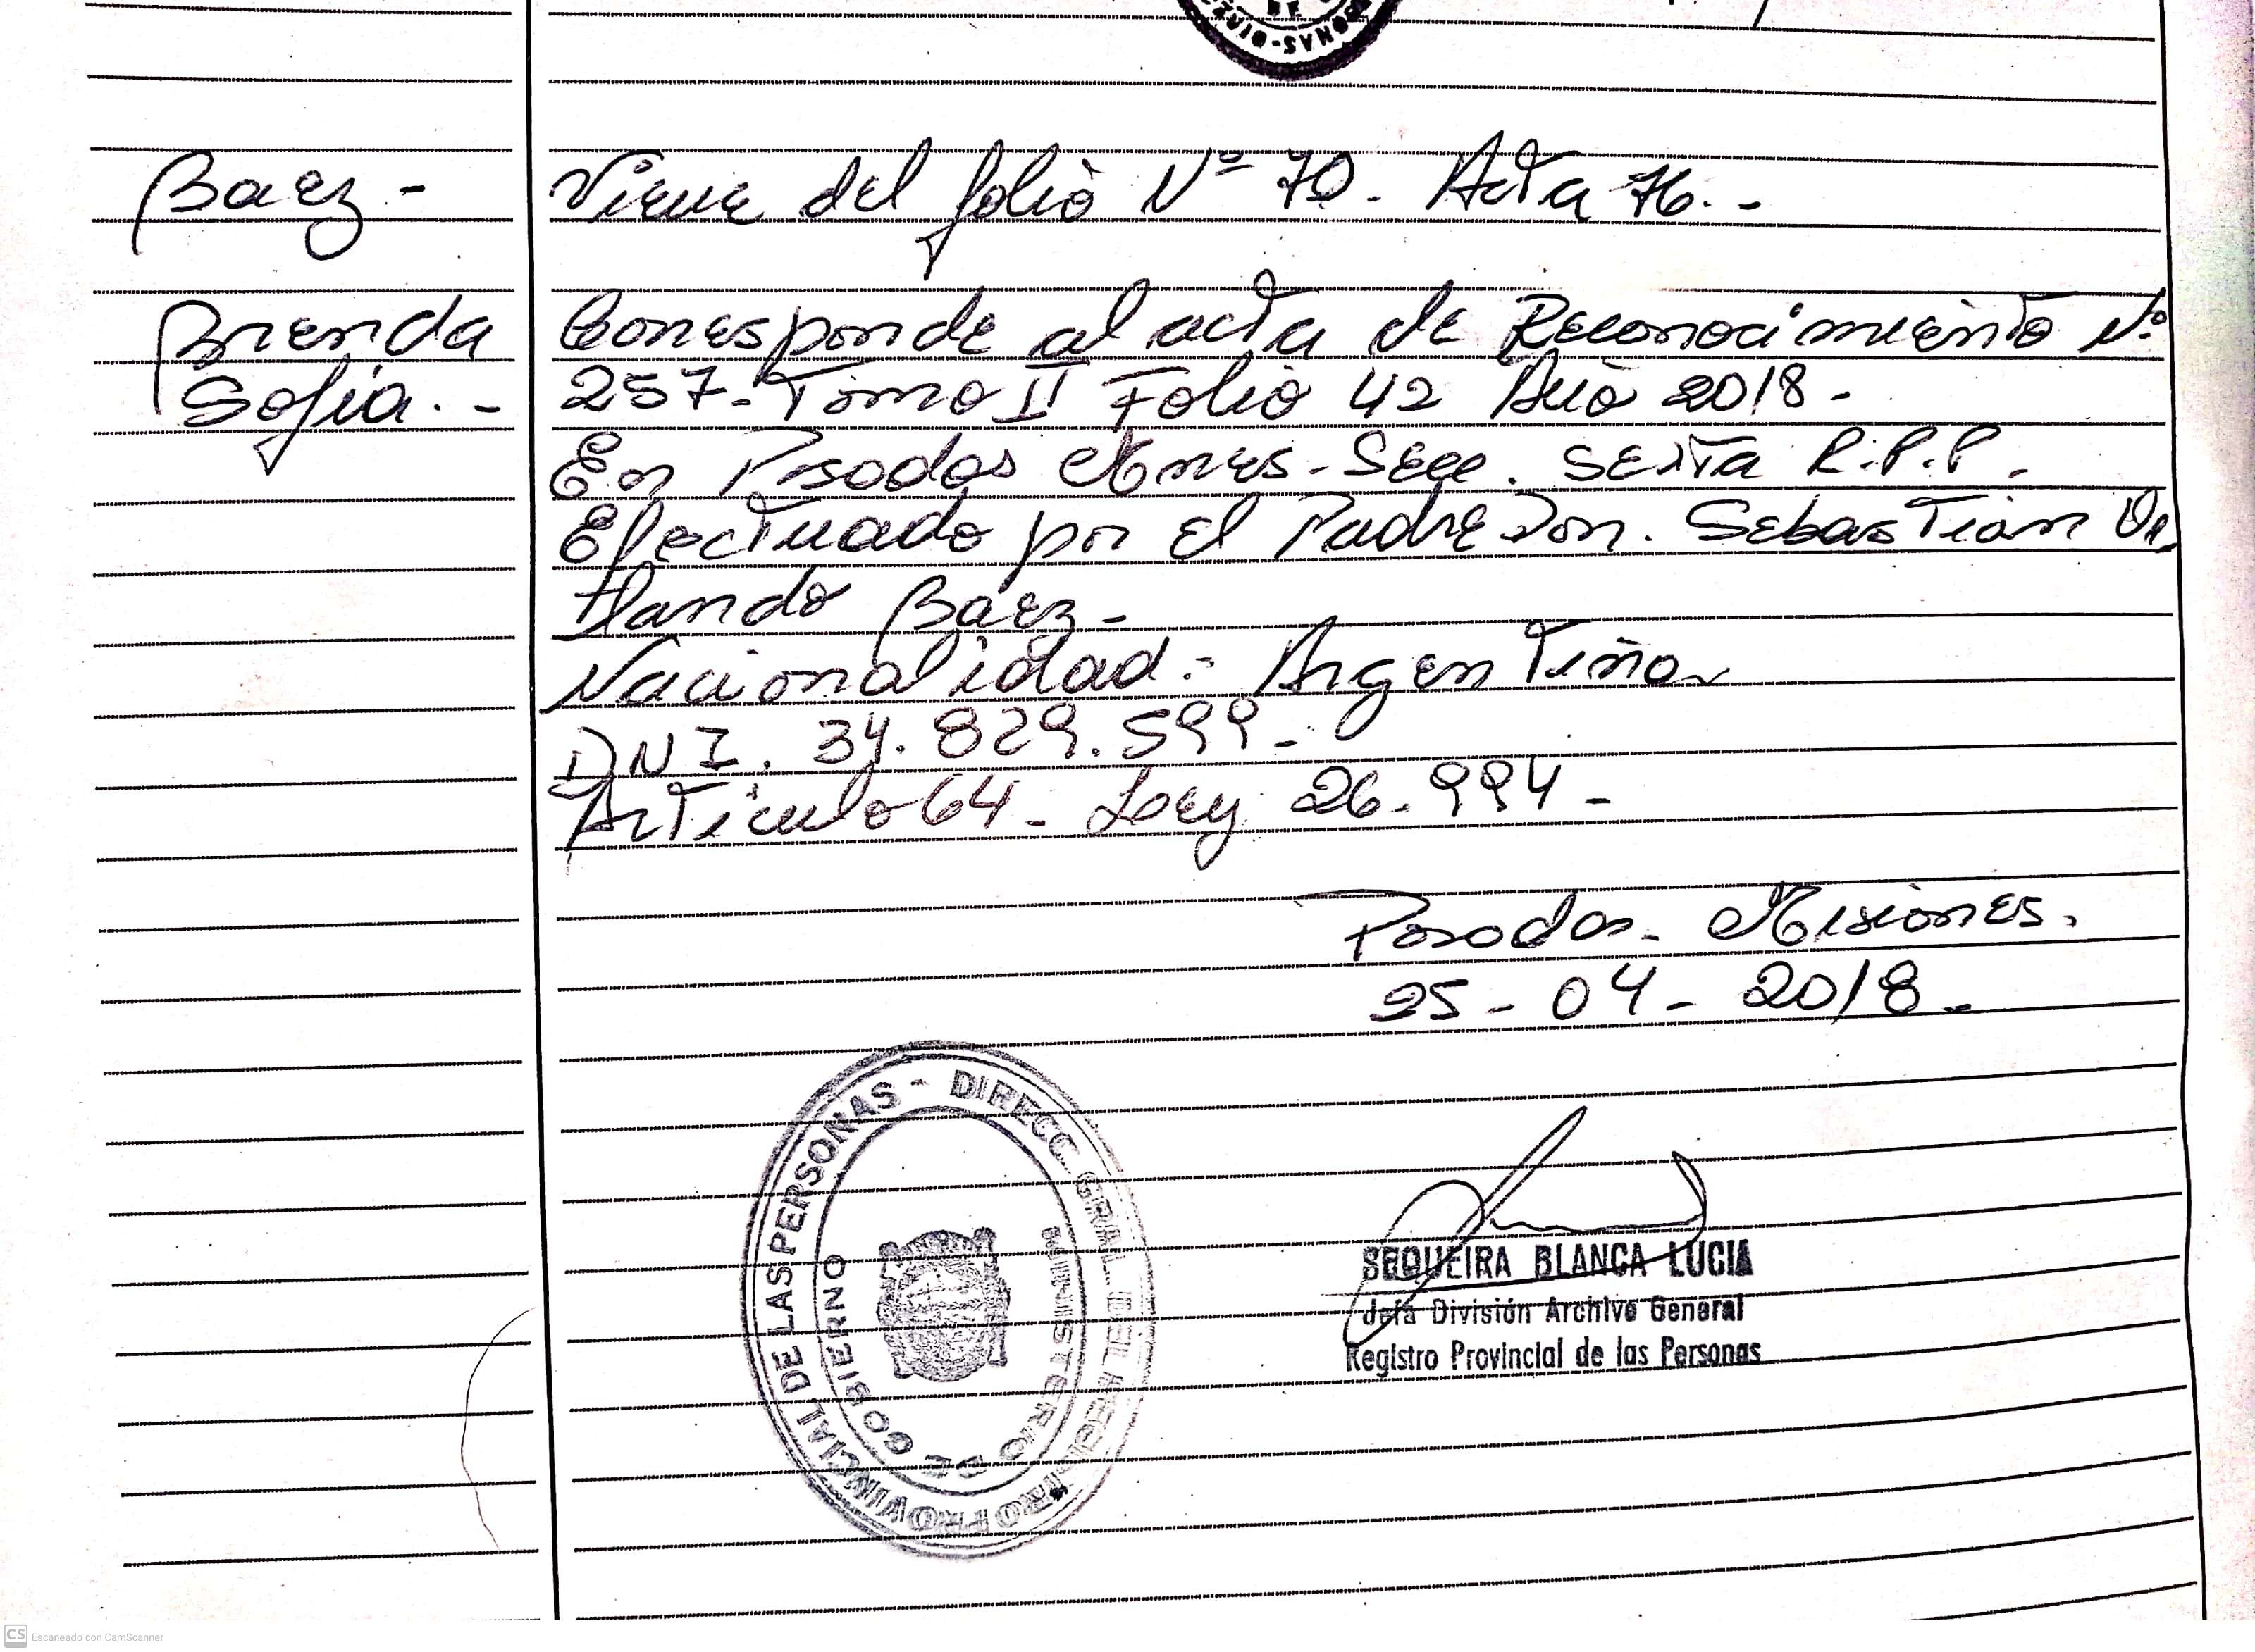 DE
ONAS-DIREC
Baez-
Viene del folio Nº 70. Acta 76.-
Brenda
Sofia.-
Corresponde al acta de Reconocimiento Nº
257-Tomo II Folio 42 Año 2018.
En Posadas Mnes-Secc. Sexta R.P.P.
Efectuado por el Padre Don. Sebastian Or
lando Baez-
Nacionalidad- Argentina
DNI. 34.829.599-
Articulo 64- Ley 26.994-
Posadas. Misiones.
25-04-2018-
DIRECC. GRAL. DEL REGISTRO PROVINCIAL DE LAS PERSONAS -
MINISTERIO DE GOBIERNO
SEQUEIRA BLANCA LUCIA
Jefa División Archivo General
Registro Provincial de las Personas
CS Escaneado con CamScanner